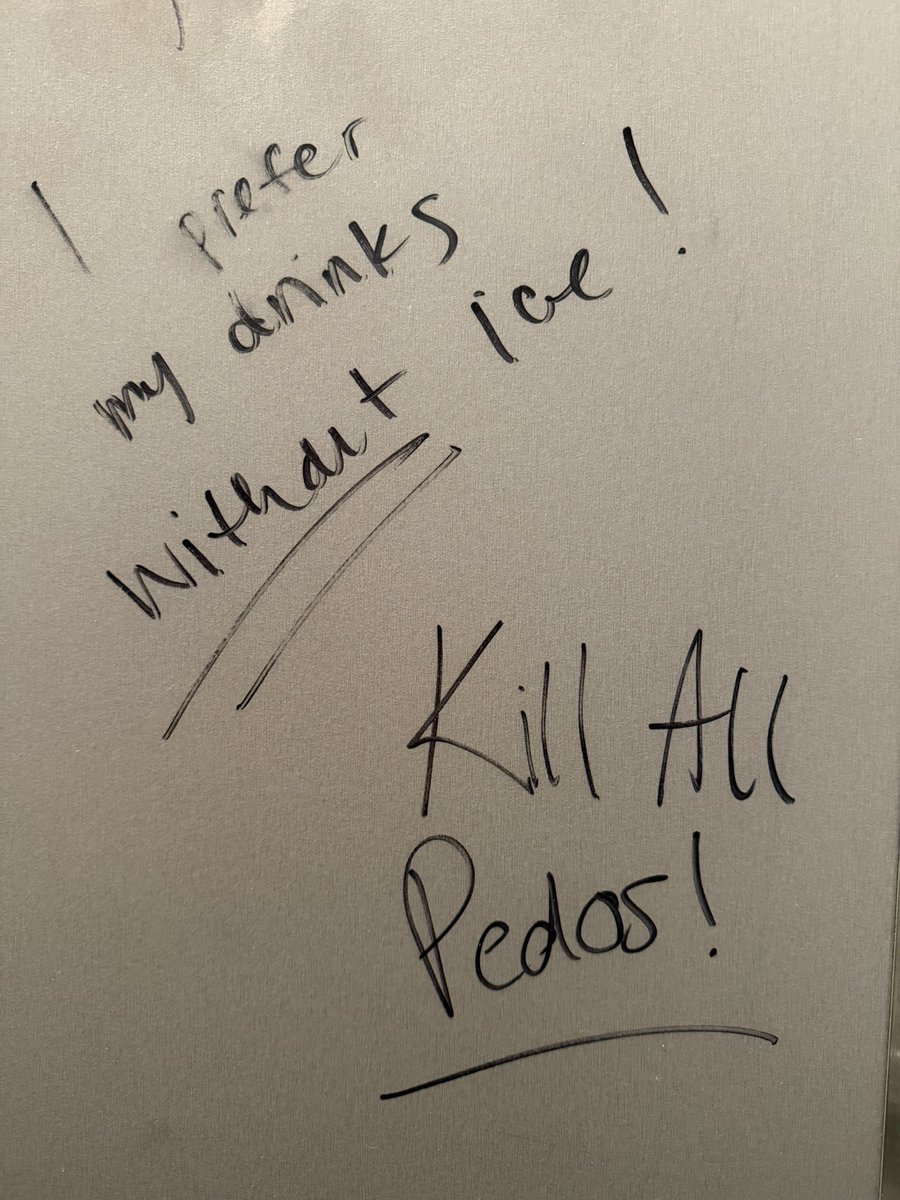 I prefer
my drinks
without ice!
Kill All
Pedos!